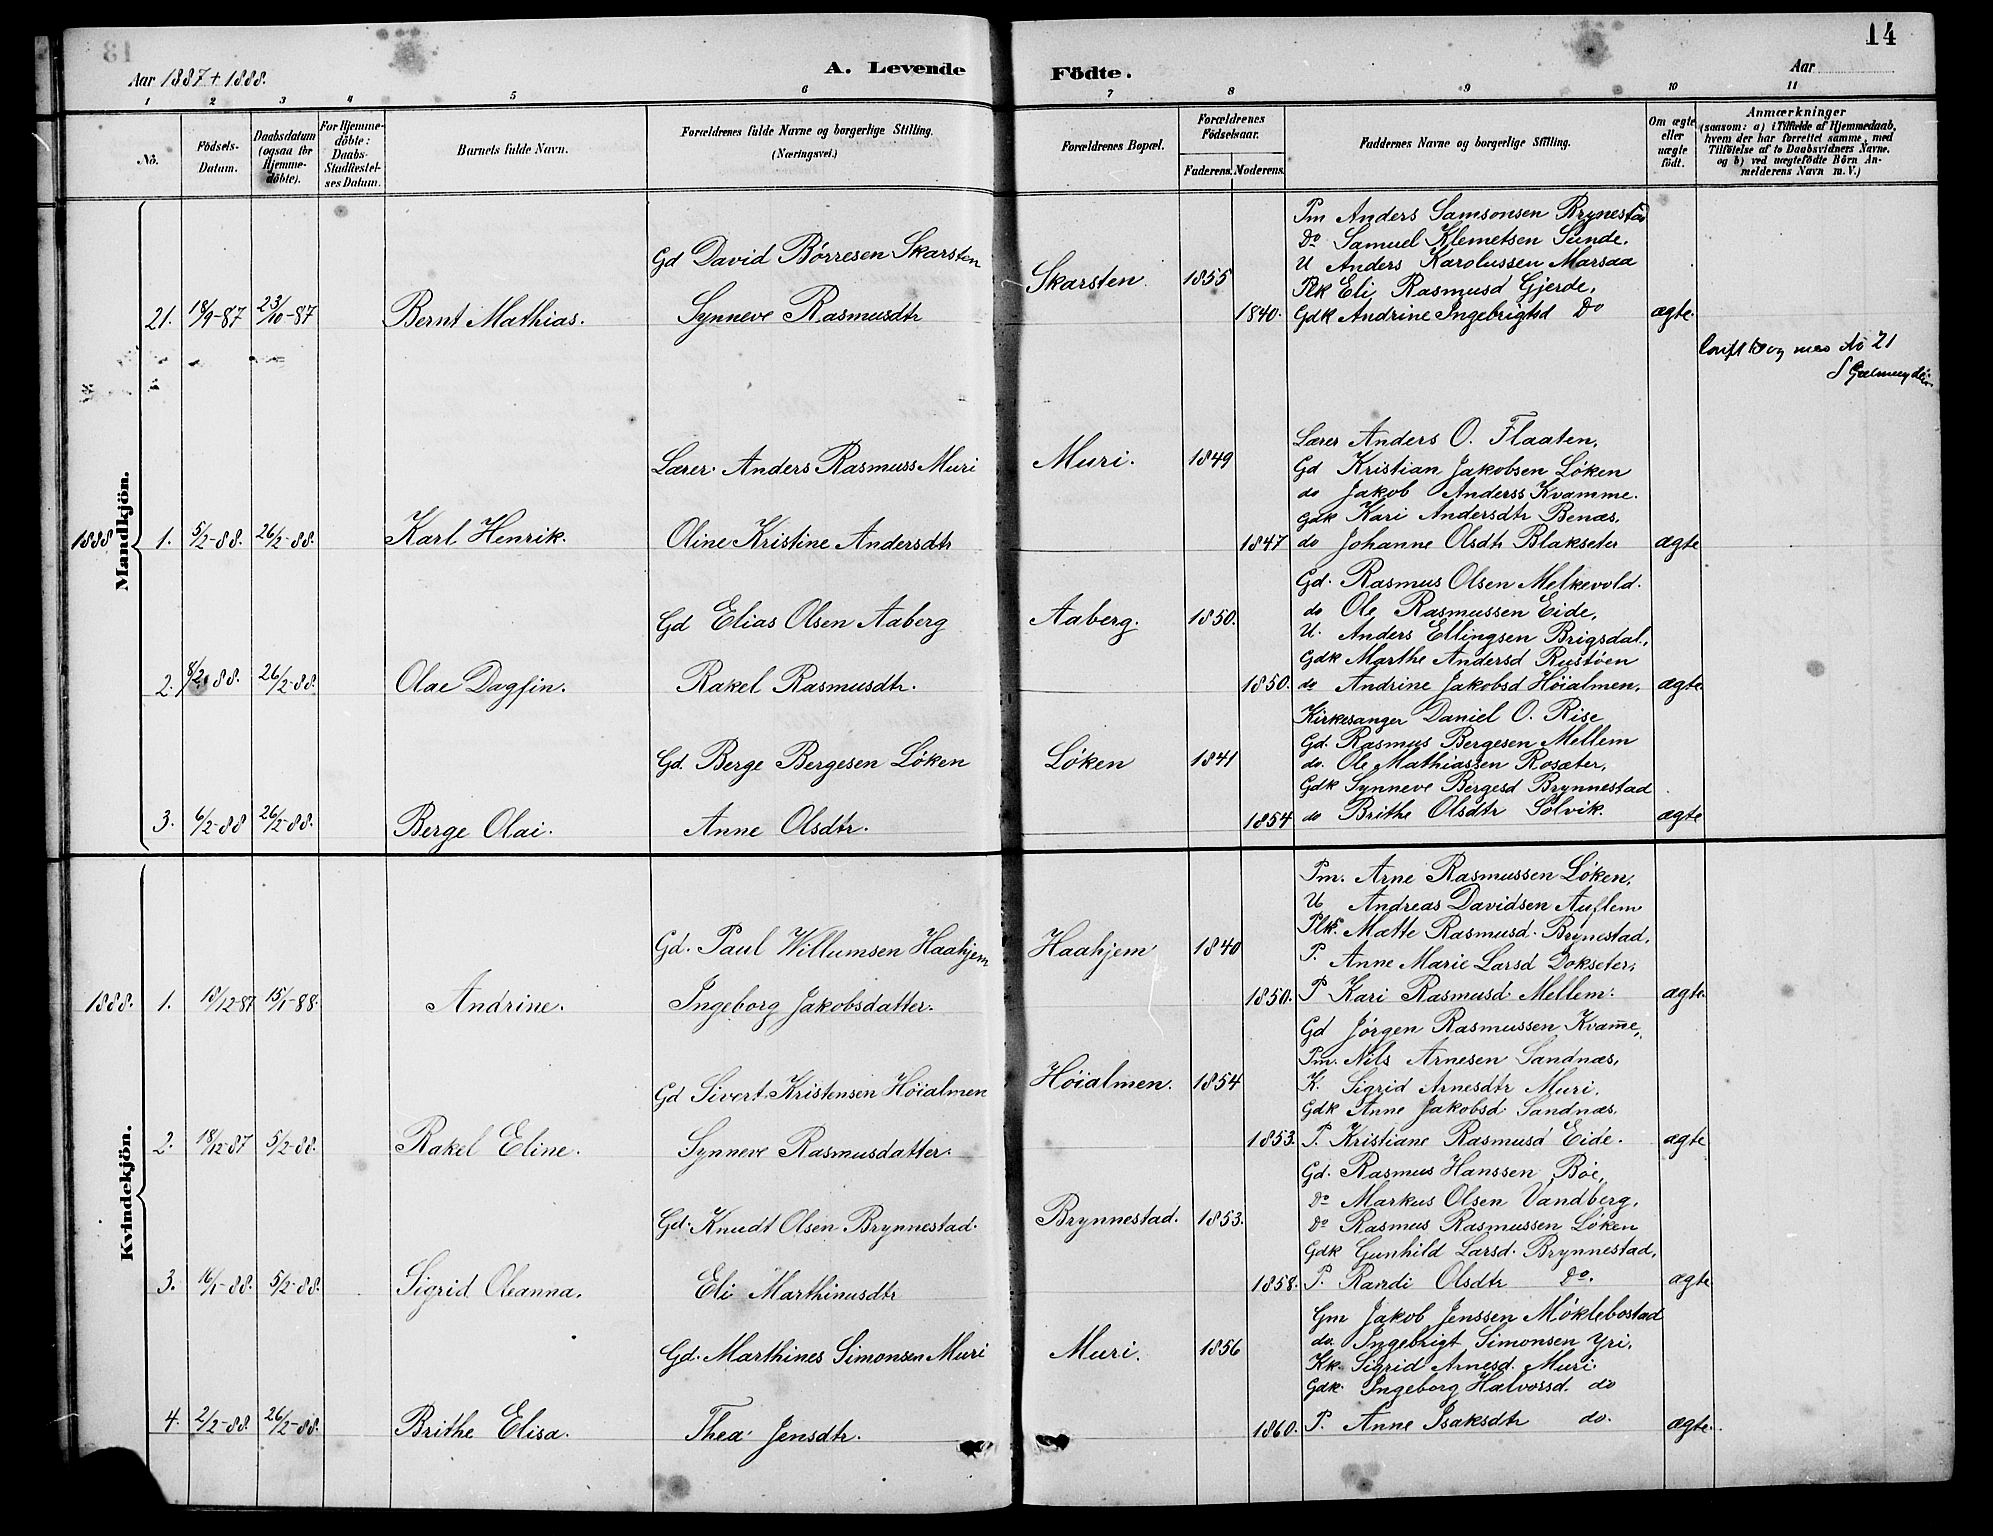 14
Aar 1887 + 1888.
A. Levende Födte.
Aar
1 2 3 4 5 6 7 8 9 10 11
No.
Födsels-Datum.
Daabsdatum (ogsaa for Hjemme-döbte).
For Hjemme-döbte: Daabs-Stadfæstel-ses Datum.
Barnets fulde Navn.
Forældrenes fulde Navne og borgerlige Stilling. (Næringsvei.)
Forældrenes Bopæl.
Forældrenes Födselsaar.
Faderens. Moderens.
Faddernes Navne og borgerlige Stilling.
Om ægte eller uægte födt.
Anmærkninger
(saasom: a) i Tilfælde af Hjemmedaab,
hvem der har forrettet samme, med
Tilföielse af to Daabsvidners Navne.
og b) ved uægtefödte Börn An-
melderens Navn m. V.)
Mandkjön.
Pm Anders Samsonsen Brynestad
Do Samuel Klemetsen Sunde.
Gd David Børresen Skarsten
Skarsten 1855
U Anders Karolussen Marsaa
Plk Eli Rasmusd Gjerde,
21. 18/9-87 23/10-87 Bernt Mathias. Synneve Rasmusdtr 1840. Gdk Andrine Ingebrigtsd Do ægte.
No 21
Lærer Anders O. Flaaten,
Lærer Anders Rasmuss Muri Muri. 1849
Gd Kristian Jakobsen Løken
do Jakob Anderss Kvamme.
Gdk Kari Andersdtr Benæs,
1888 1. 5/2-88. 26/2-88. Karl Henrik. Oline Kristine Andersdtr 1847 do Johanne Olsdtr Blakseter ægte
Gd. Rasmus Olsen Melkevold.
Gd Elias Olsen Aaberg Aaberg. 1850.
do Ole Rasmussen Eide,
U. Anders Ellingsen Brigsdal,
Gdk Marthe Andersd Rustøen
2. 8/2-88. 26/2-88. Olae Dagfin. Rakel Rasmusdtr. 1850. do Andrine Jakobsd Høialmen, ægte
Kirkesanger Daniel O. Rise
Gd. Rasmus Bergesen Mellem
Gd. Berge Bergesen Løken Løken 1841
do. Ole Mathiassen Rosæter,
Gdk Synneve Bergesd Brynnestad
3. 6/2-88 26/2-88. Berge Olai. Anne Olsdtr. 1854 do Brithe Olsdtr Solvik. ægte
Kvindekjön.
Pm. Arne Rasmussen Løken,
U Andreas Davidsen Auflem
Plk. Mætte Rasmusd. Brynestad,
Gd. Paul Willumsen Haahjem Haahjem 1840
P. Anne Marie Larsd Dokseter,
1888. 1. 18/12-87 15/1-88. Andrine. Ingeborg Jakobsdatter. 1850. P Kari Rasmusd. Mellem. ægte.
Gd Jørgen Rasmussen Kvam̄e,
Pm. Nils Arnesen Sandnæs,
Gd Sivert Kristensen Høialmen Høialmen. 1854
K. Sigrid Arnesdtr Muri,
Gdk Anne Jakobsd. Sandnæs,
2. 18/12-87 5/2-88. Rakel Eline. Synneve Rasmusdatter. 1853. P. Kristiane Rasmusd Eide. ægte
Gd. Rasmus Hanssen Bøe,
Do Markus Olsen Vandberg,
Gd. Knudt Olsen Brynnestad. Brynnestad. 1853.
Do Rasmus Rasmussen Løken
Gdk Gunhild Larsd. Brynnestad,
3. 16/1-88. 5/2-88. Sigrid Oleanna. Eli Marthinusdtr 1858. P. Randi Olsdtr Do. ægte
Gm Jakob Jenssen Møklebostad
do. Ingebrigt Simonsen Yri,
Gd. Marthines Simonsen Muri Muri. 1856
Kk. Sigrid Arnesd. Muri.
Gdk. Ingeborg Halvorsd. do
4. 2/2-88. 26/2-88. Brithe Elisa. Thea Jensdtr. 1860. P. Anne Isaksdtr do. ægte.